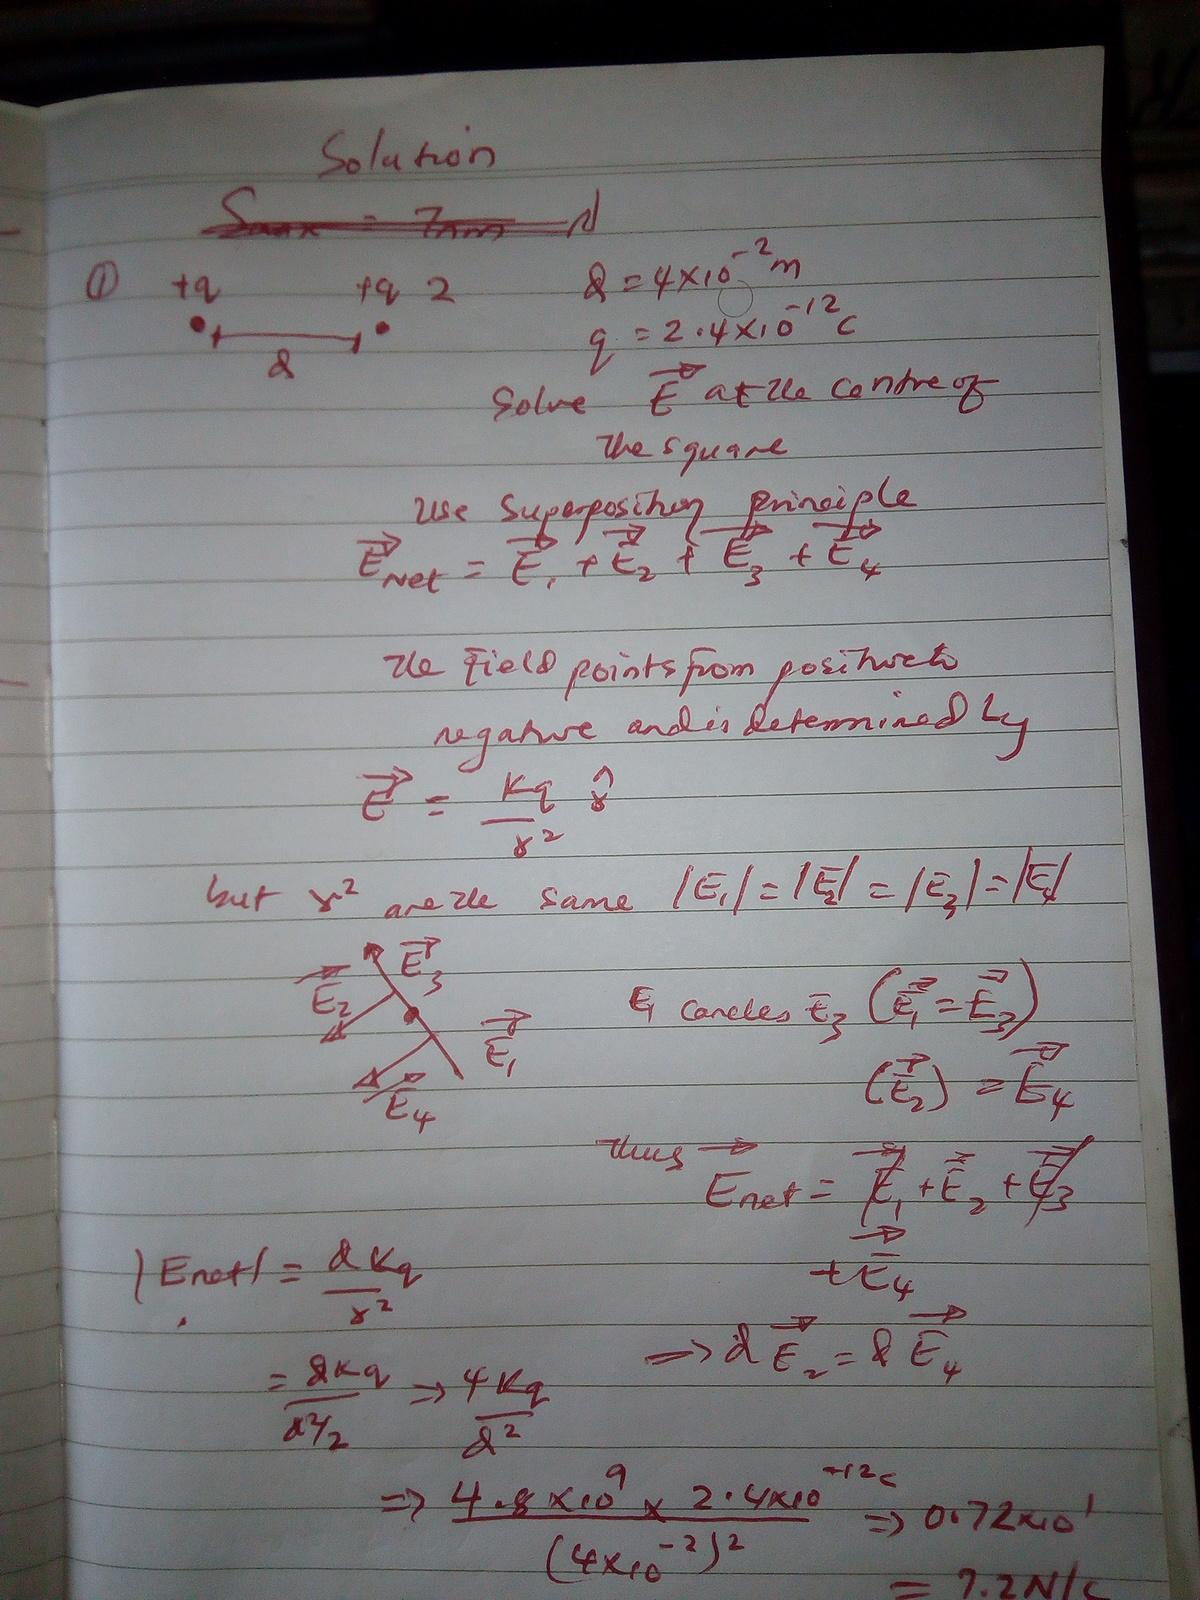 Solution
① +q +q 2 d = 4×10⁻² m
d q = 2.4×10⁻¹² C
Solve E⃗ at the centre of
the square
Use Superposition principle
E⃗Net = E⃗₁ + E⃗₂ + E⃗₃ + E⃗₄
The Field points from positive to
negative and is determined by
E⃗ = Kq/r² r̂
but r² are the same |E₁| = |E₂| = |E₃| = |E₄|
E⃗₃
E⃗₂ E₁ cancles E₃ (E⃗₁ = E⃗₃)
E⃗₁
E⃗₄ (E⃗₂) = E⃗₄
Thus E⃗net = E⃗₁ + E⃗₂ + E⃗₃
+ E⃗₄
|Enet| = 2Kq/r²
→ 2E⃗₂ = 2E⃗₄
= 2Kq/d²/2 ⇒ 4Kq/d²
⇒ 2.4×10⁻¹² C / (4×10⁻²)² ⇒ 0.72×10¹
= 7.2 N/C